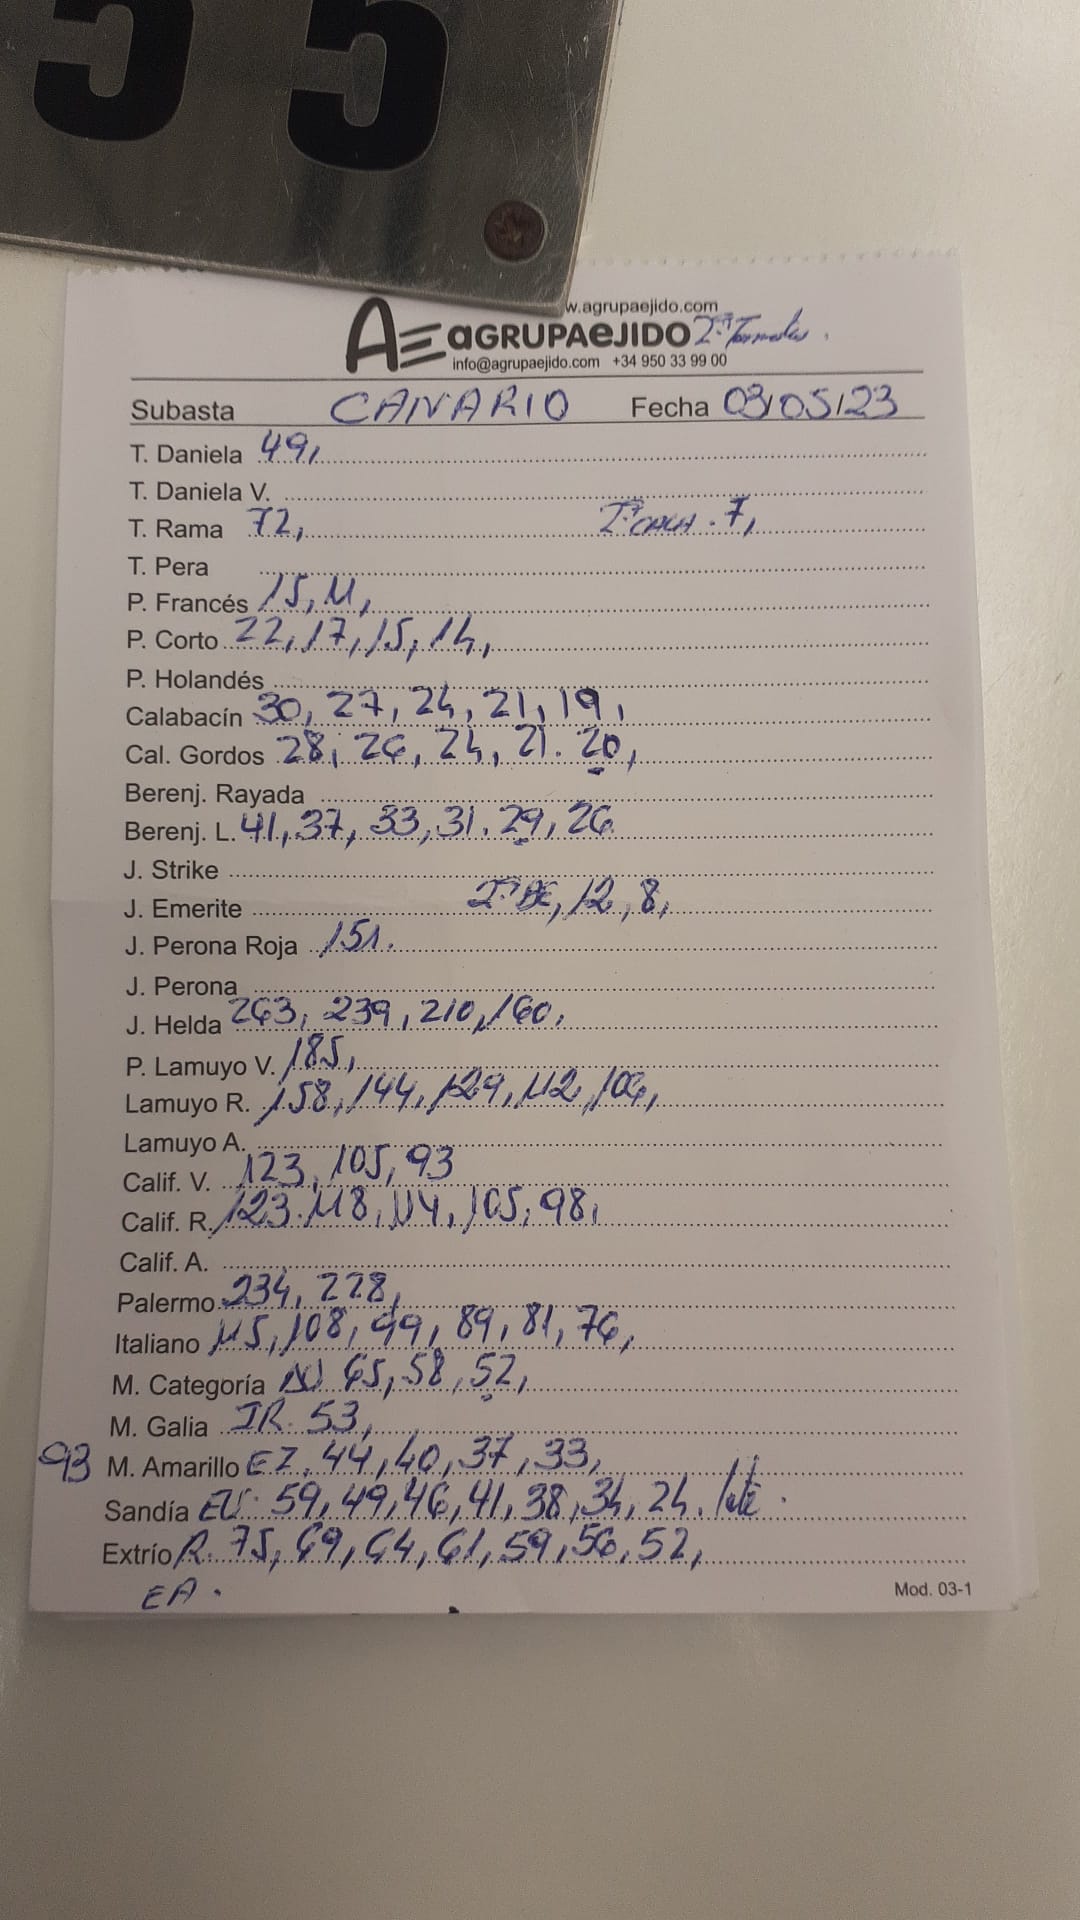 55
w.agrupaejido.com
AE aGRUPAeJIDO 2ª Tomates.
info@agrupaejido.com +34 950 33 99 00
Subasta CANARIO Fecha 03/05/23
T. Daniela 49,
T. Daniela V.
T. Rama 72, 2ª CALA. 7,
T. Pera
P. Francés 15, 11,
P. Corto 22, 17, 15, 14,
P. Holandés
Calabacín 30, 27, 24, 21, 19,
Cal. Gordos 28, 26, 24, 21. 20,
Berenj. Rayada
Berenj. L. 41, 37, 33, 31. 29, 26
J. Strike
J. Emerite 2ª BE, 12, 8,
J. Perona Roja 151.
J. Perona
J. Helda 263, 239, 210, 160,
P. Lamuyo V. 185,
Lamuyo R. 158, 144, 129, 112, 106,
Lamuyo A.
Calif. V. 123, 105, 93
Calif. R. 123. 118, 114, 105, 98,
Calif. A.
Palermo 234, 228,
Italiano 115, 108, 99, 89, 81, 76,
M. Categoría 65, 58, 52,
M. Galia IR. 53,
93 M. Amarillo EZ. 44, 40, 37, 33,
Sandía 59, 49, 46, 41, 38, 34, 24.
Extrío R. 75, 69, 64, 61, 59, 56, 52,
EA.
Mod. 03-1